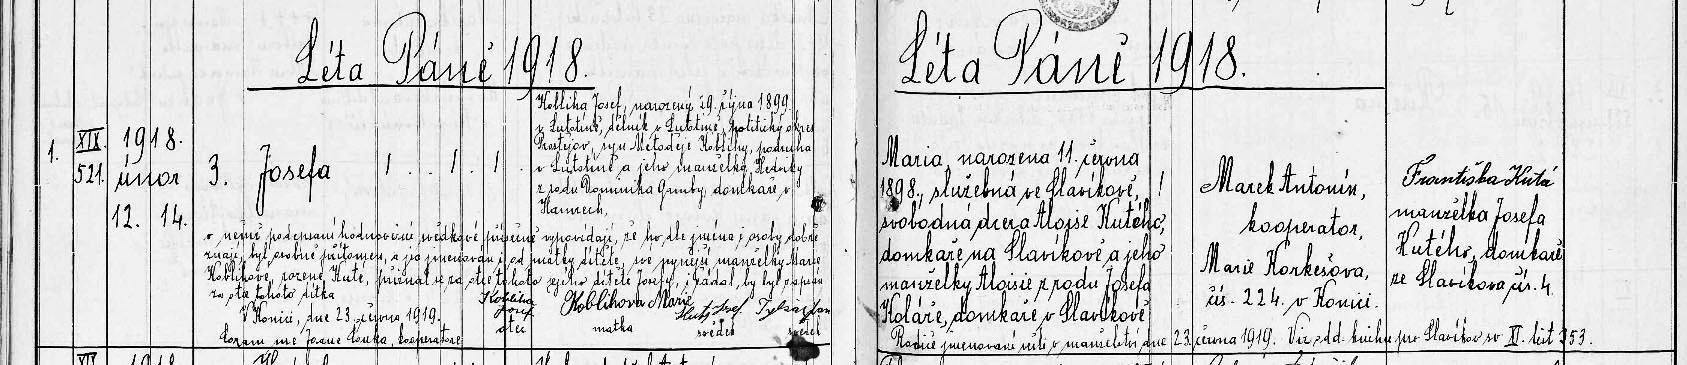 Léta Páně 1918.
1.
XIX.
521.
1918.
únor
12. 14.
3.
Josefa
1 . . 1 . 1 .
Kobliha Josef, narozený 29. října 1899
v Lutotíně, dělník v Lutotíně, politický okres
Prostějov, syn Metoděje Koblihy, podruha
v Lutotíně a jeho manželky Hedviky
z rodu Dominika domkáře v
o němž podepsaní hodnověrní svědkové přísežně vypovídají, že ho dle jména i osoby dobře
znají, byl osobně přítomen, a jsa jmenován i od matky dítěte, své nynější manželky Marie
Koblihové, rozené Kuté, přiznal se za otce tohoto dítěte Josefy, i žádal, by byl zapsán
za otce tohoto dítka
V Konici, dne 23. června 1919.
Coram me Josue kooperatore
Kobliha
Josef
otec
Koblihova Marie
matka
Josef
svědek
svědek
Léta Páně 1918.
Maria, narozena 11. června
1898, služebná ve Slavíkově,
svobodná dcera Aloise Kutého,
domkáře na Slavíkově a jeho
manželky Aloisie z rodu Josefa
Koláře, domkáře v Slavíkově
1
Marek Antonín,
kooperator,
Marie Korkešova,
čís. 224. v Konici.
Františka Kutá
manželka Josefa
Kutého, domkáře
ze Slavíkova, čís. 4.
Rodiče jmenovaní vešli v manželství dne 23. června 1919. Viz odd. knihu pro Slavíkov sv XI. list 353.
XII. 1918.